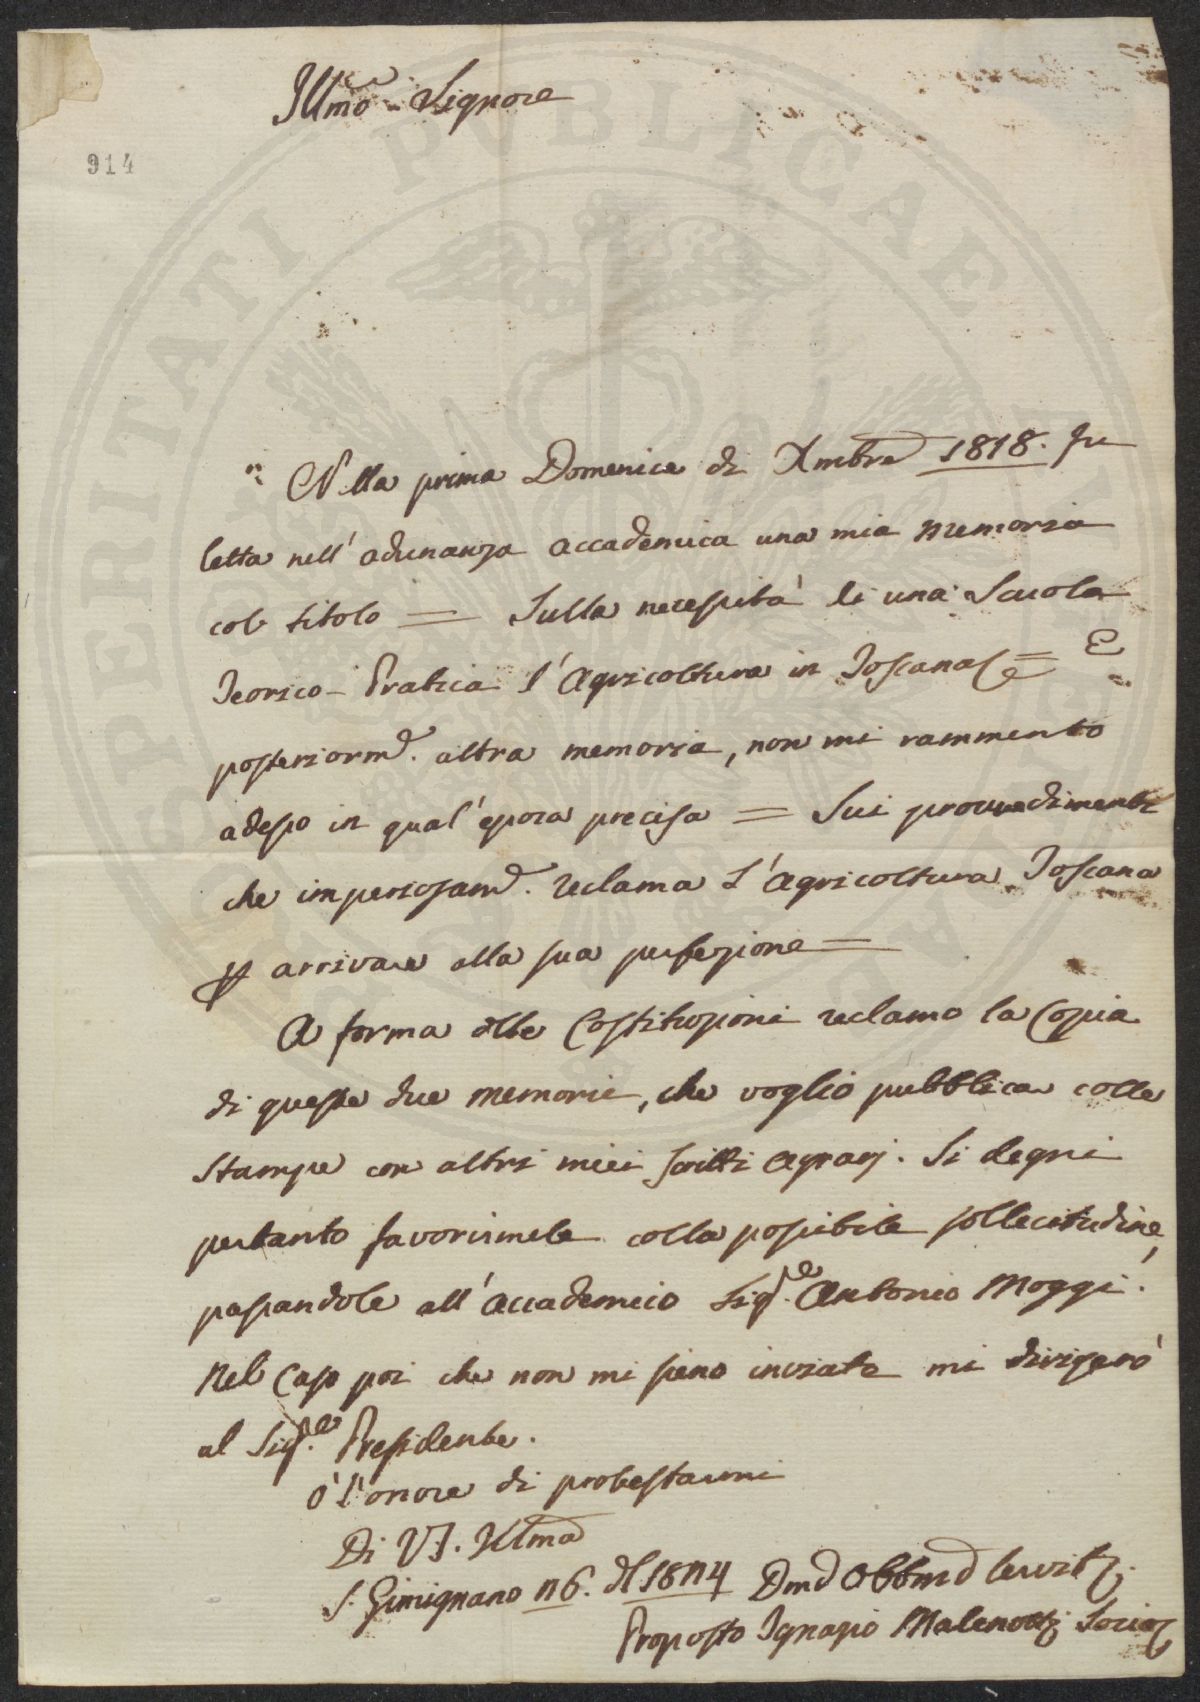 Illmo Signore
914
Nella prima Domenica di Xmbre 1818. fu
letta nell' adunanza accademica una mia memoria
col titolo = Sulla necessità di una Scuola
Teorico-Pratica d'Agricoltura in Toscana = E
posteriorme. altra memoria, non mi rammento
adesso in qual' epoca precisa = Sui provvedimenti
che imperiosame. reclama l'Agricoltura Toscana
p arrivare alla sua perfezione =
A forma delle Costituzioni reclamo la Copia
di queste due memorie, che voglio pubblicar colle
stampe con altri miei scritti agrarj. Si degni
pertanto favorirmele colla possibile sollecitudine,
passandole all' Accademico Sigre. Antonio Moggi.
Nel caso poi che non mi sieno inviate mi dirigerò
al Sigre. Presidente.
Ò l'onore di protestarmi
Di VS. Illma
S. Gimignano Dmo Obbmo Servitr.
Proposto Ignazio Malenotti Socio
PROSPERITATI PUBLICAE AUGENDAE